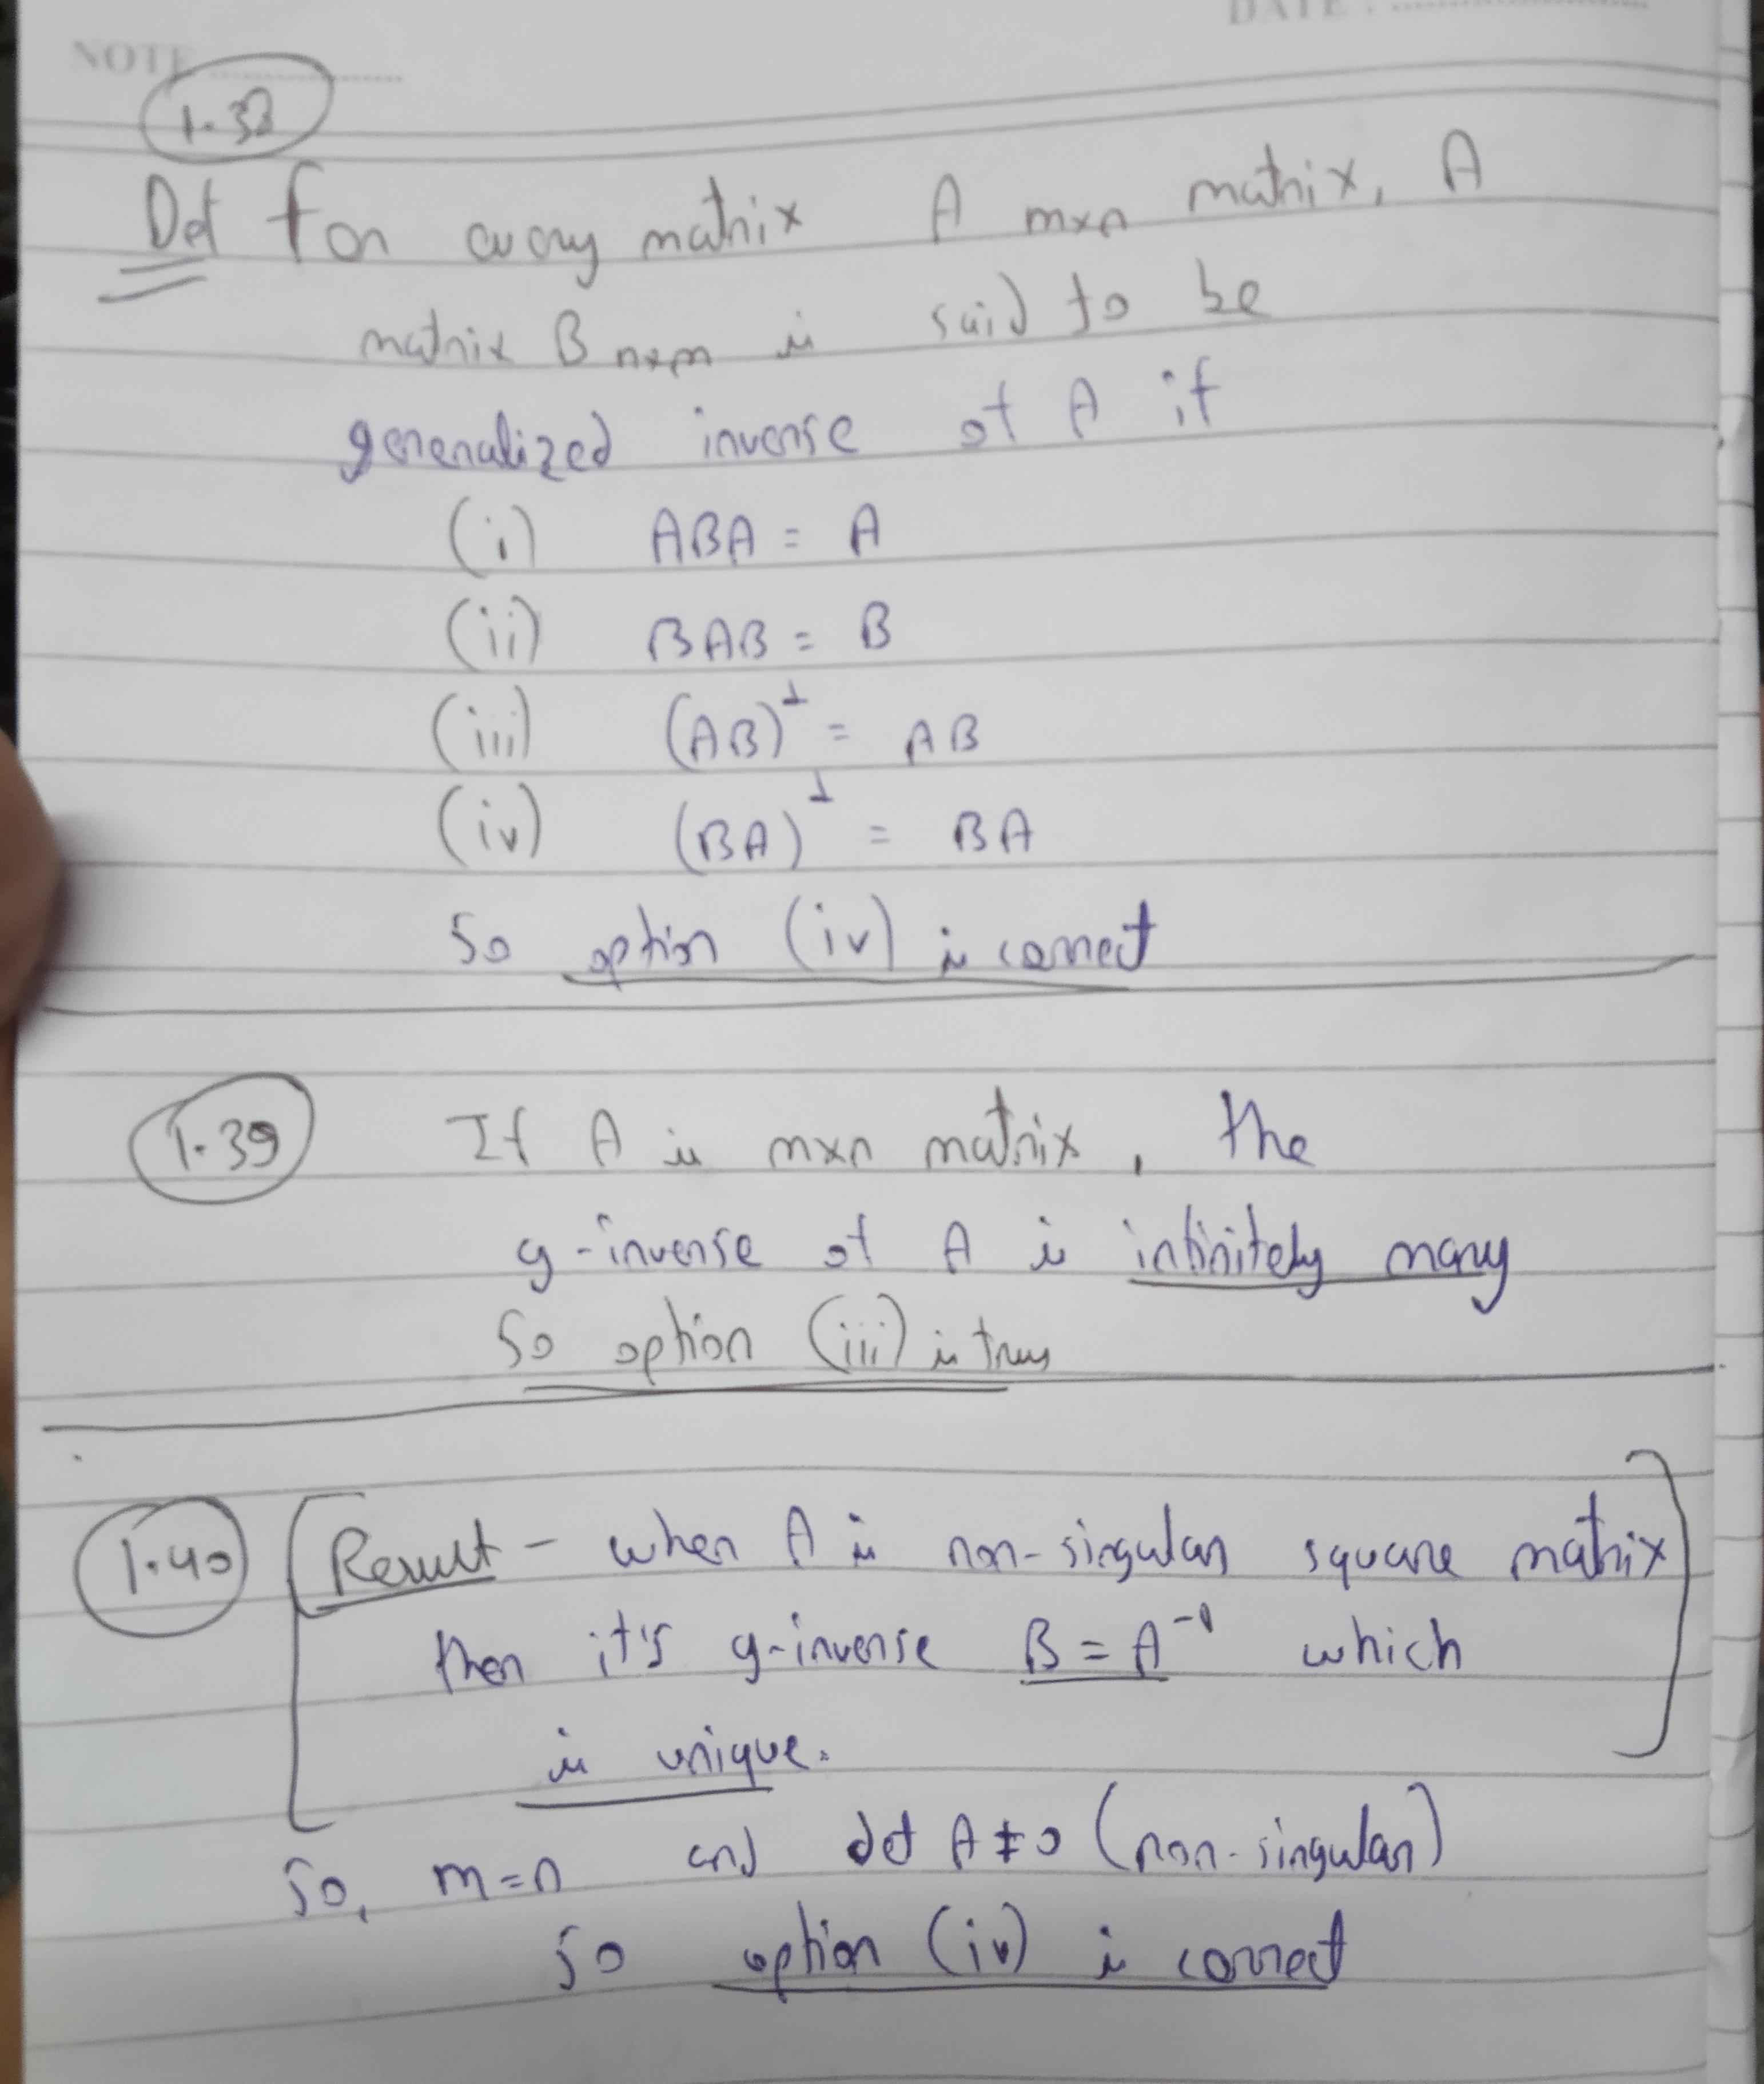 DATE :
NOTE
1.38
Def For every matrix A mxn matrix, A
matrix B nxm is said to be
generalized inverse of A if
(i) ABA = A
(ii) BAB = B
(iii) (AB)⊥ = AB
(iv) (BA)⊥ = BA
So option (iv) is correct
1.39 If A is mxn matrix, the
g-inverse of A is infinitely many
So option (iii) is true
1.40 Result - when A is non-singular square matrix
then it's g-inverse B = A⁻¹ which
is unique.
So, m=n and det A ≠ 0 (non-singular)
So option (iv) is correct